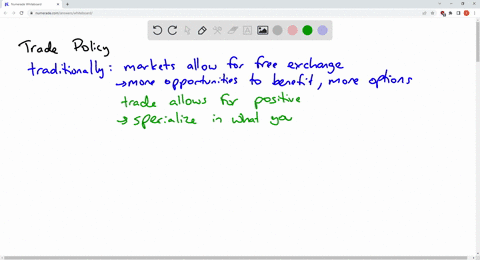 Numerade Whiteboard
numerade.com/answers/whiteboard/
Trade Policy
traditionally: markets allow for free exchange
→ more opportunities to benefit, more options
trade allows for positive
→ specialize in what you